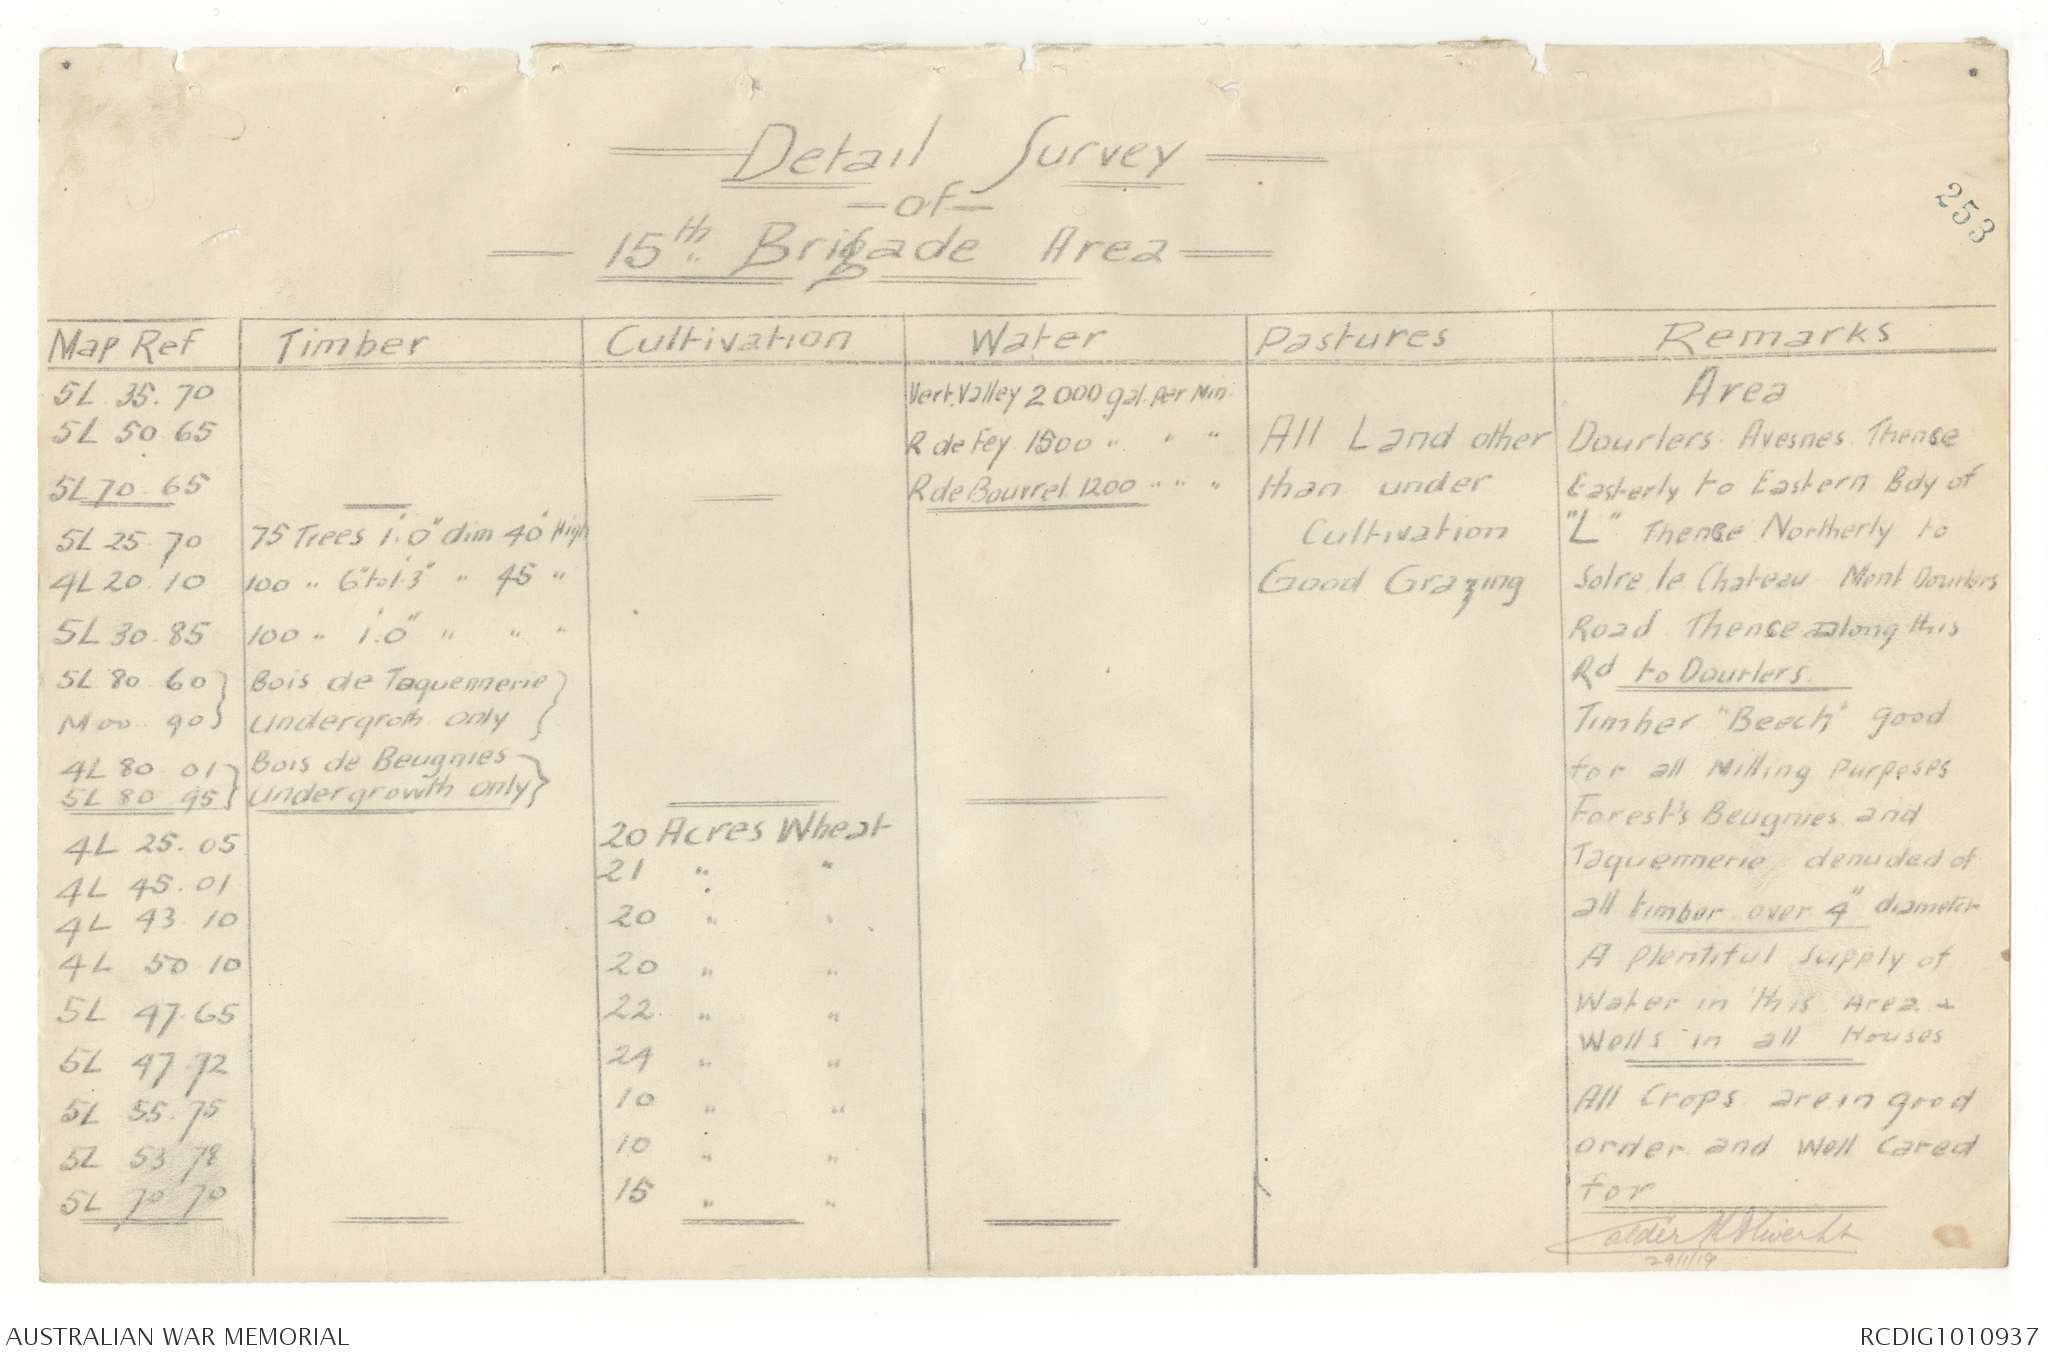 Detail Survey
of
15th Brigade Area
253
Map Ref Timber Cultivation Water Pastures Remarks
5L 35.70 Vert. Valley 2000 gal. per Min. Area
5L 50 65 R de Fey 1500 " " " All Land other Dourlers Avesnes Thence
5L 70.65 R de Bourrel 1200 " " " than under Easterly to Eastern Bdy of
5L 25.70 75 Trees 1'.0" dim 40' High Cultivation "L" Thence Northerly to
4L 20.10 100 " 6" to 1'.3" " 45 " Good Grazing Solre le Chateau Mont Dourlers
5L 30.85 100 " 1'.0" " " " Road Thence along this
5L 80 60 } Bois de Taquennerie } Rd to Dourlers.
M 00 90 } Undergroth only } Timber "Beech" good
4L 80 01 } Bois de Beugnies } for all Milling Purposes
5L 80 95 } Undergrowth only } Forest's Beugnies and
4L 25.05 20 Acres Wheat Taquennerie denuded of
4L 45.01 21 " " all timber over 4" diameter
4L 43 10 20 " " A plentiful supply of
4L 50 10 20 " " Water in this Area +
5L 47.65 22 " " Wells in all Houses
5L 47.72 24 " " All Crops are in good
5L 55.75 10 " " order and Well Cared
5L 53 78 10 " " for
5L 70 70 15 " "
29/1/19
AUSTRALIAN WAR MEMORIAL RCDIG1010937